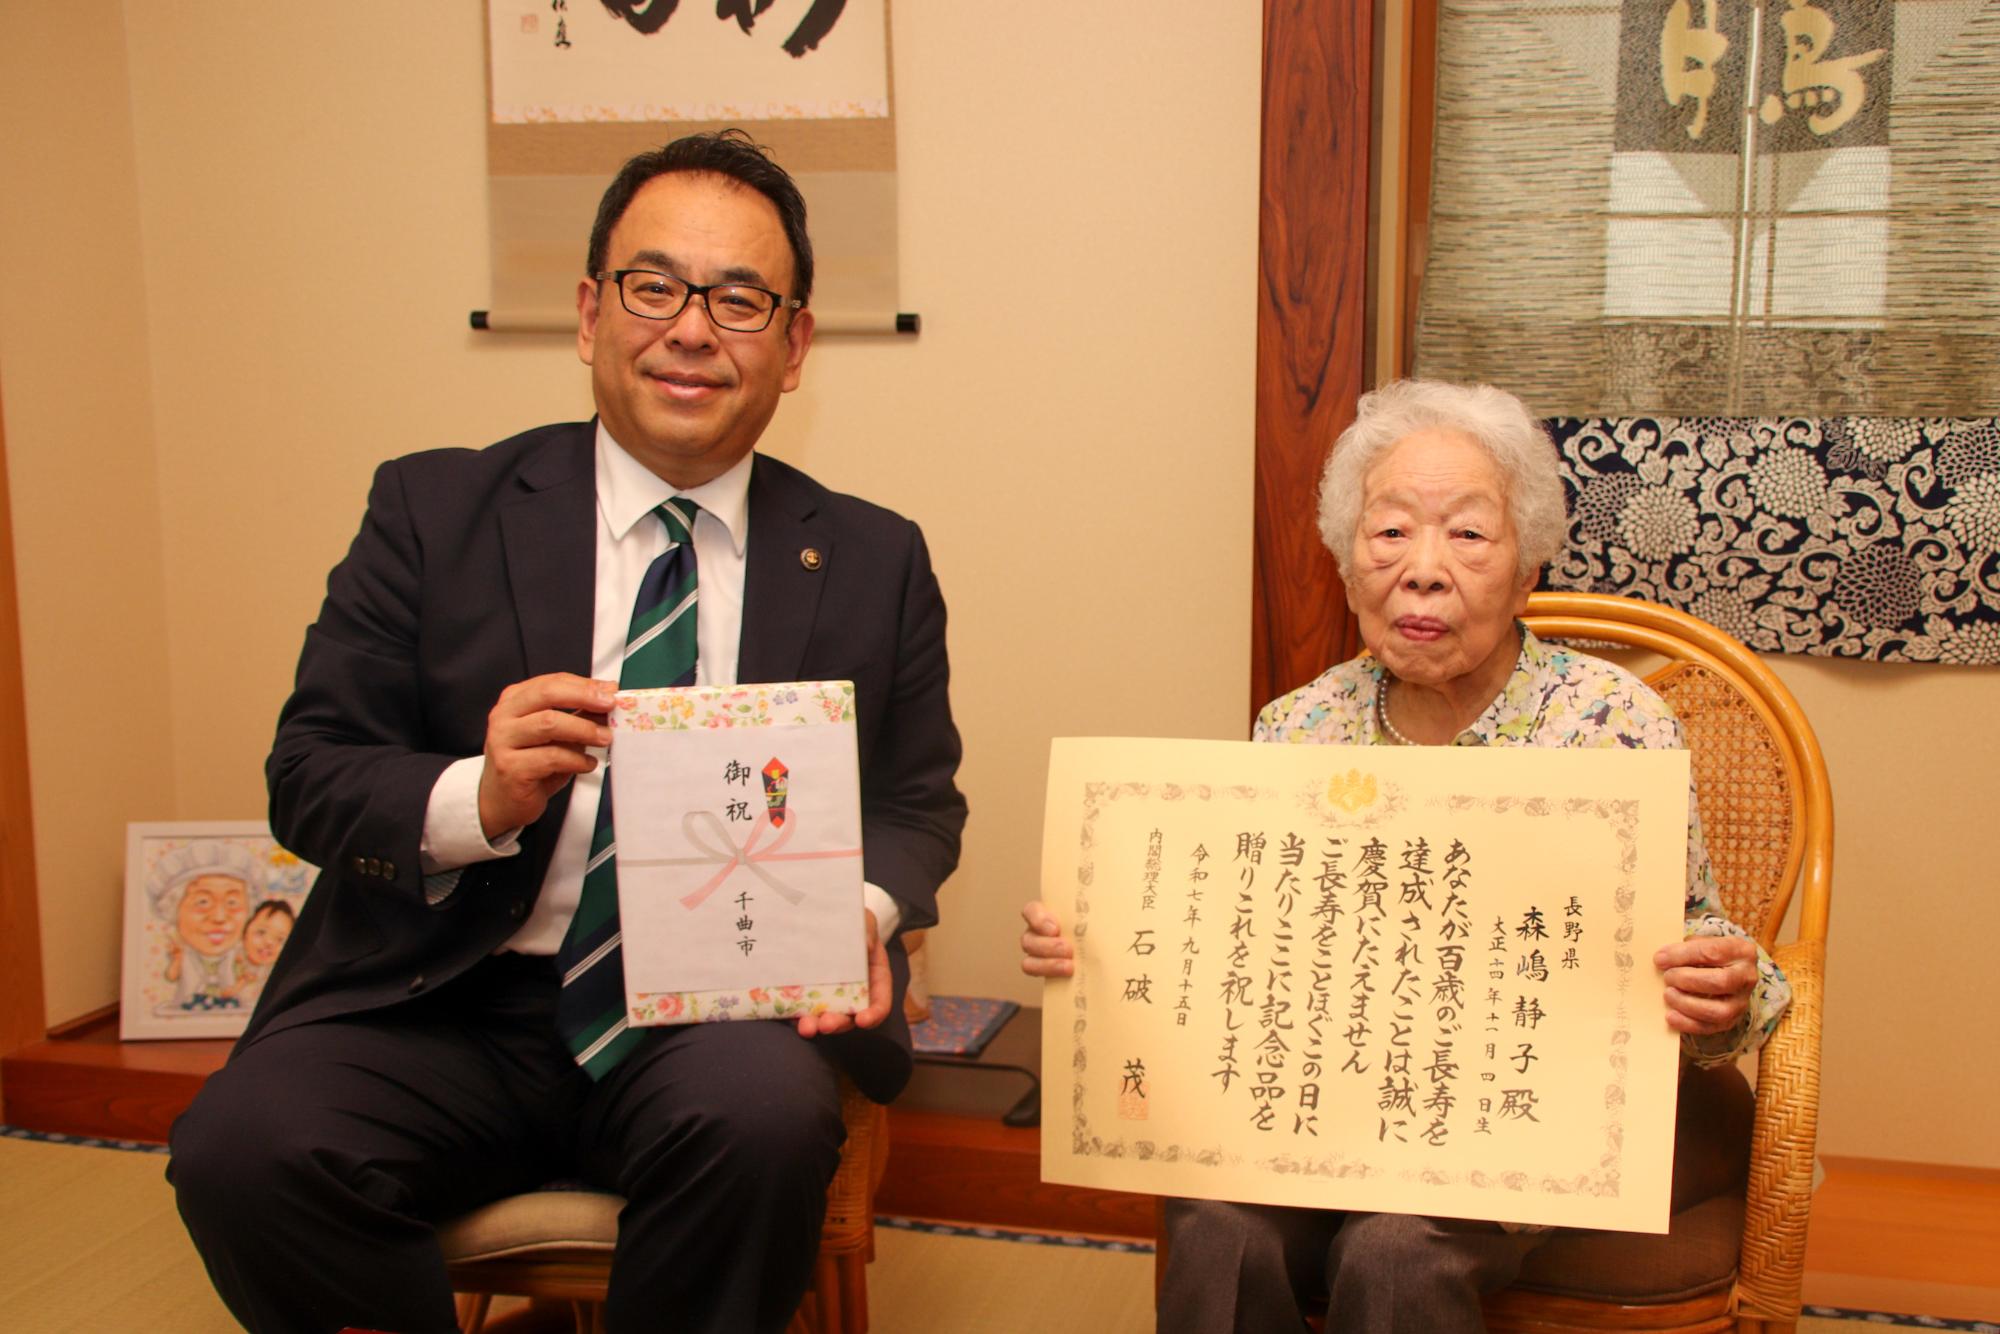 御祝
千曲市
長野県
森嶋静子殿
大正十四年十一月四日生
あなたが百歳のご長寿を
達成されたことは誠に
慶賀にたえません
ご長寿をことほぐこの日に
当たりここに記念品を
贈りこれを祝します
令和七年九月十五日
内閣総理大臣 石破 茂